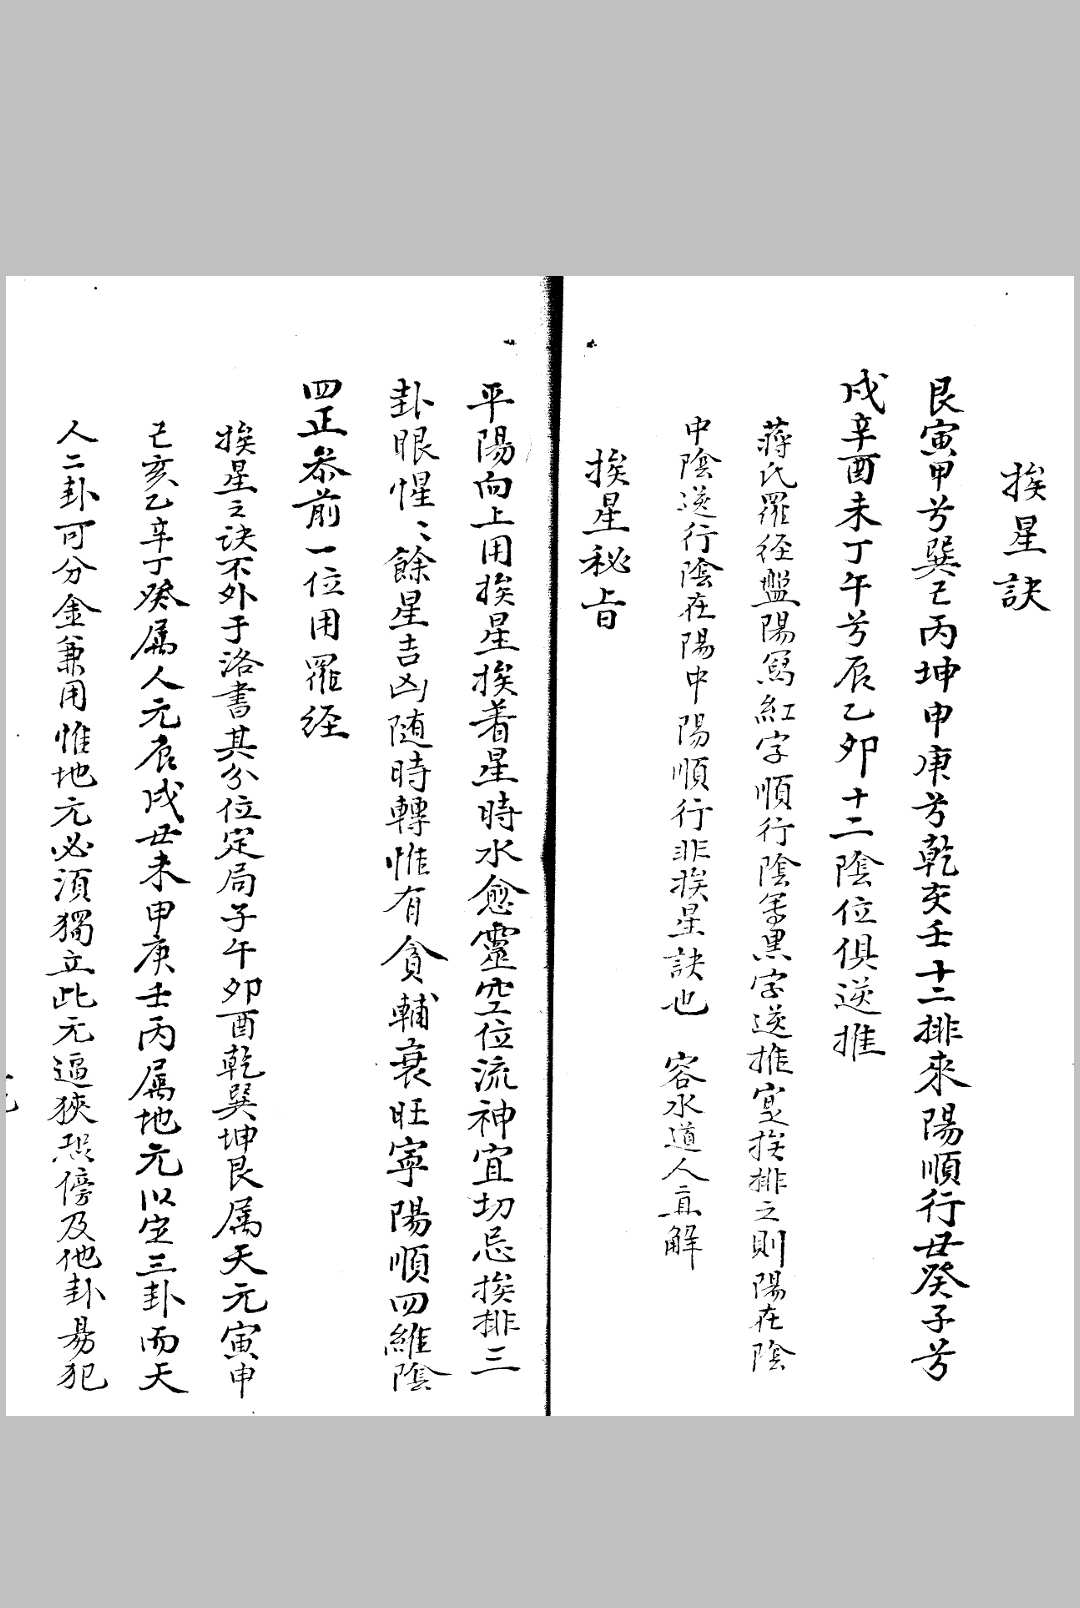 挨星訣
艮寅甲兮巽巳丙坤申庚兮乾亥壬十二排來陽順行丑癸子兮
戌辛酉未丁午兮辰乙卯十二陰位俱逆推
蔣氏羅经盤陽寫紅字順行陰寫黑字逆推寔挨排之則陽在陰
中陰逆行陰在陽中陽順行非挨星訣也 容水道人直解
挨星秘旨
平陽向上用挨星挨着星時水愈靈空位流神宜切忌挨排三
卦眼惺〻餘星吉凶随時轉惟有貪輔衰旺寧陽順四維陰
四正叅前一位用羅经
挨星之诀不外于洛書其分位定局子午卯酉乾巽坤艮属天元寅申
巳亥乙辛丁癸属人元辰戌丑未甲庚壬丙属地元以定三卦而天
人二卦可分金兼用惟地元必須獨立此元逼狹恐傍及他卦易犯